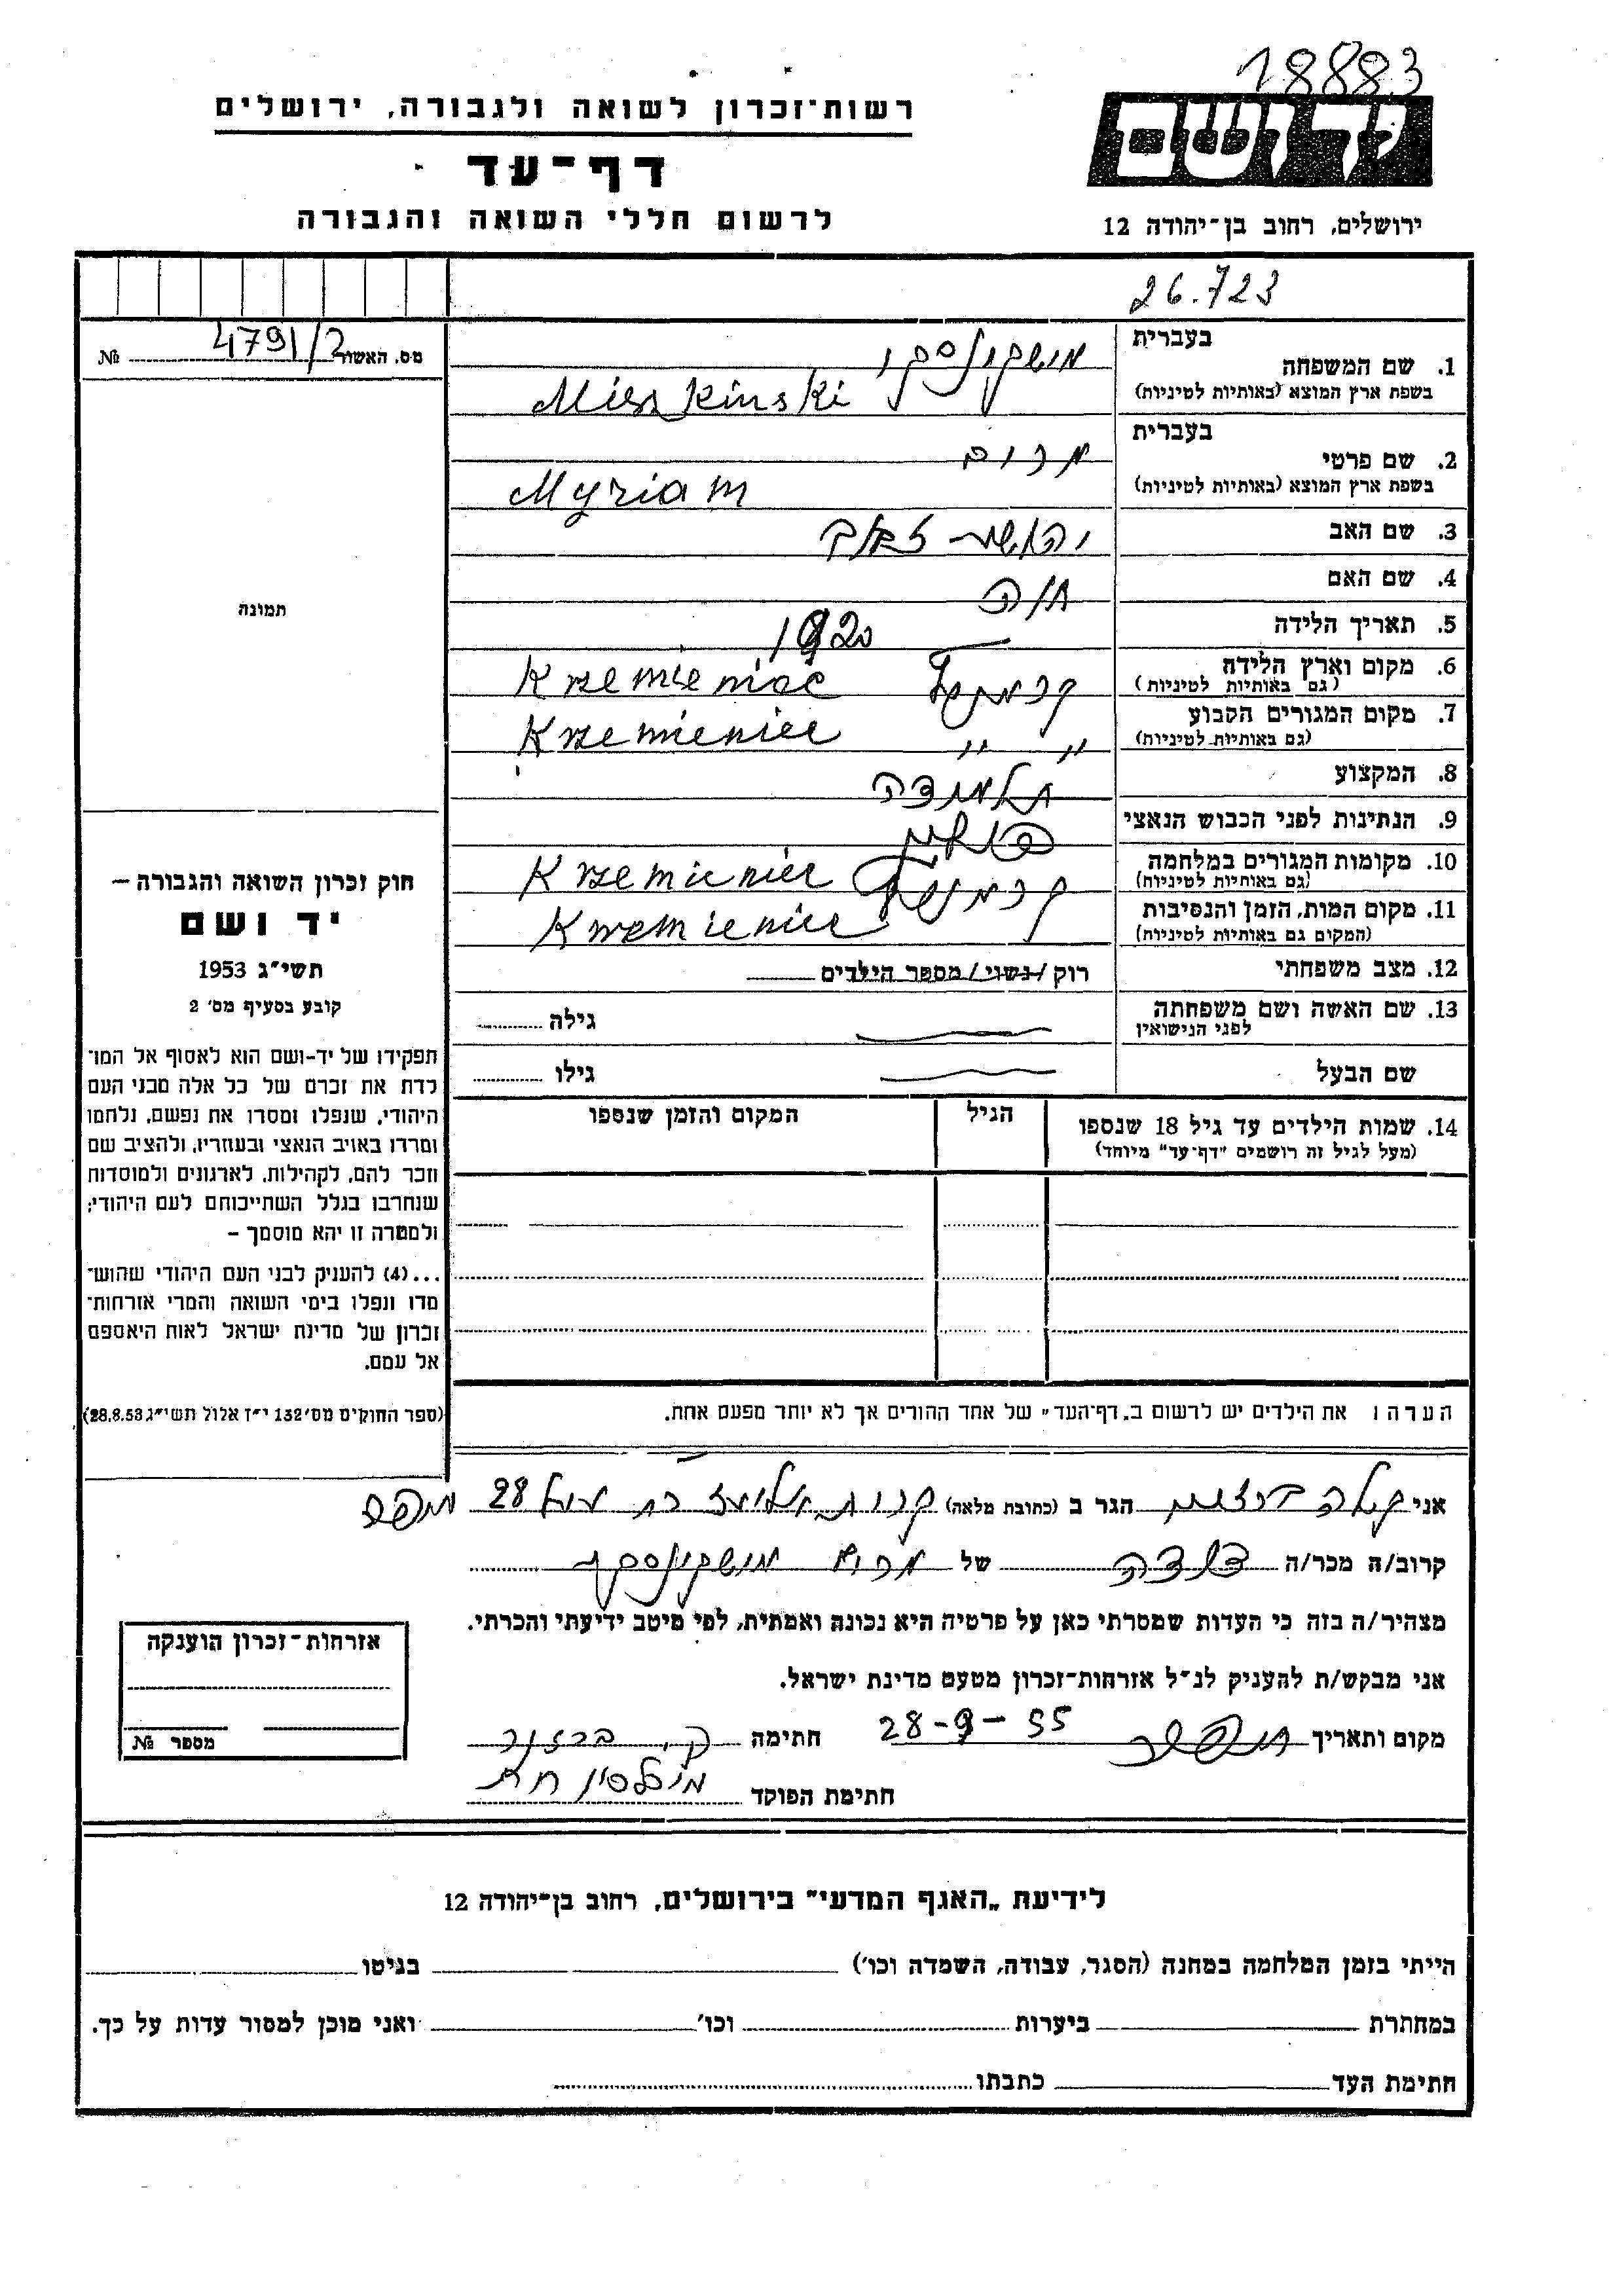 18883
רשות־זכרון לשואה ולגבורה, ירושלים
יד ושם
דף־עד
לרשום חללי השואה והגבורה
ירושלים, רחוב בן־יהודה 12
26.723
מס. האשור 4791/2 №
תמונה
בעברית
1. שם המשפחה מושקינסקי
בשפת ארץ המוצא (באותיות לטיניות) Misskinski
בעברית
2. שם פרטי מרים
בשפת ארץ המוצא (באותיות לטיניות) Myriam
3. שם האב
4. שם האם חיה
5. תאריך הלידה 1920
6. מקום וארץ הלידה Krzemieniec
(גם באותיות לטיניות)
7. מקום המגורים הקבוע " " Krzemieniec
(גם באותיות לטיניות)
8. המקצוע תלמידה
9. הנתינות לפני הכבוש הנאצי
10. מקומות המגורים במלחמה Krzemieniec
(גם באותיות לטיניות)
11. מקום המות, הזמן והנסיבות
(המקום גם באותיות לטיניות)
12. מצב משפחתי רוק / נשוי / מספר הילדים
13. שם האשה ושם משפחתה גילה
לפני הנישואין
שם הבעל גילו
14. שמות הילדים עד גיל 18 שנספו הגיל המקום והזמן שנספו
(מעל לגיל זה רושמים "דף־עד" מיוחד)
הערה: את הילדים יש לרשום ב„דף־העד" של אחד ההורים אך לא יותר מפעם אחת.
חוק זכרון השואה והגבורה –
יד ושם
תשי"ג 1953
קובע בסעיף מס' 2
תפקידו של יד-ושם הוא לאסוף אל המו־
לדת את זכרם של כל אלה מבני העם
היהודי, שנפלו ומסרו את נפשם, נלחמו
ומרדו באויב הנאצי ובעוזריו, ולהציב שם
וזכר להם, לקהילות, לארגונים ולמוסדות
שנחרבו בגלל השתייכותם לעם היהודי;
ולמטרה זו יהא מוסמך –
...(4) להעניק לבני העם היהודי שהוש־
מדו ונפלו בימי השואה והמרי אזרחות־
זכרון של מדינת ישראל לאות היאספם
אל עמם.
(ספר החוקים מס' 132 י"ז אלול תשי"ג 28.8.53)
אני הגר ב (כתובת מלאה) קרית אליעזר 28 חיפה
קרוב/ה מכר/ה דודה של מרים מושקינסקי
מצהיר/ה בזה כי העדות שמסרתי כאן על פרטיה היא נכונה ואמתית, לפי מיטב ידיעתי והכרתי.
אני מבקש/ת להעניק לנ"ל אזרחות־זכרון מטעם מדינת ישראל.
מקום ותאריך 28-9-55 חתימה
חתימת הפוקד
אזרחות־זכרון הוענקה
מספר №
לידיעת „האגף המדעי" בירושלים, רחוב בן־יהודה 12
הייתי בזמן המלחמה במחנה (הסגר, עבודה, השמדה וכו') בגיטו
במחתרת ביערות וכו' ואני מוכן למסור עדות על כך.
חתימת העד כתבתו